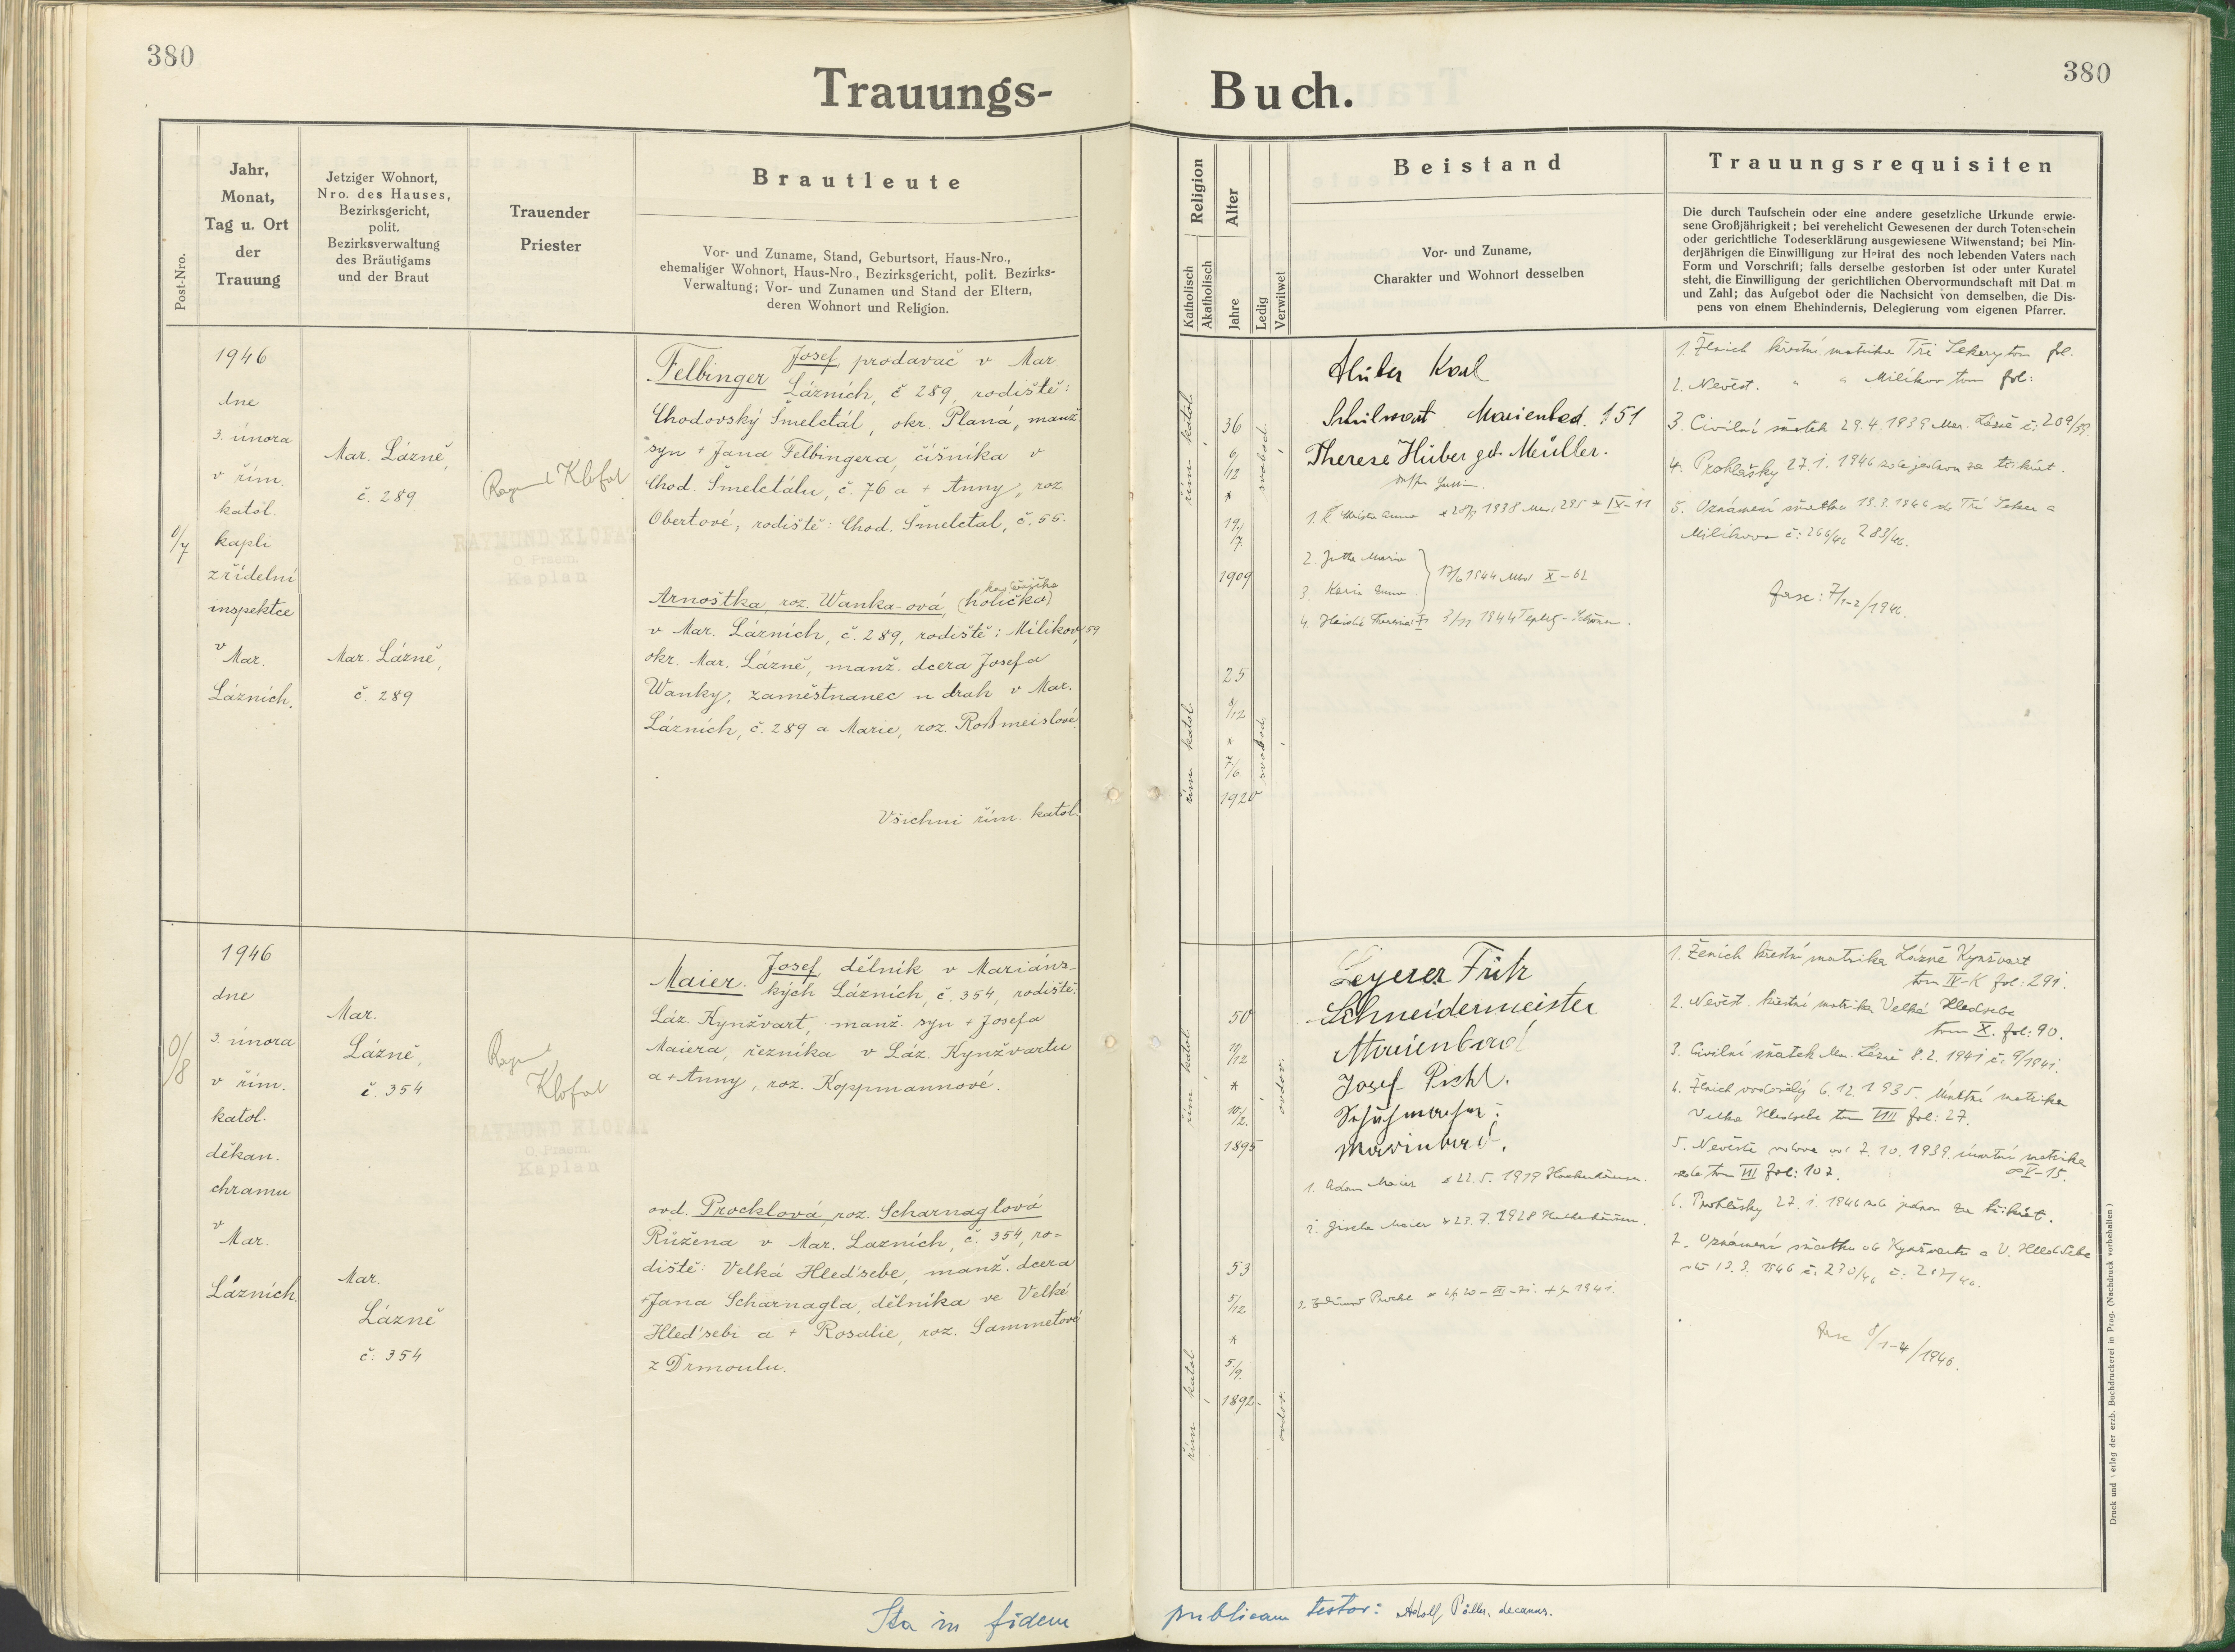 380
Trauungs-
Buch.
380
Post-Nro.
Jahr,
Monat,
Tag u. Ort
der
Trauung
Jetziger Wohnort,
Nro. des Hauses,
Bezirksgericht,
polit.
Bezirksverwaltung
des Bräutigams
und der Braut
Trauender
Priester
Brautleute
Vor- und Zuname, Stand, Geburtsort, Haus-Nro.,
ehemaliger Wohnort, Haus-Nro., Bezirksgericht, polit. Bezirks-
Verwaltung; Vor- und Zunamen und Stand der Eltern,
deren Wohnort und Religion.
Religion
Katholisch
Akatholisch
Alter
Jahre
Ledig
Verwitwet
Beistand
Vor- und Zuname,
Charakter und Wohnort desselben
Trauungsrequisiten
Die durch Taufschein oder eine andere gesetzliche Urkunde erwie-
sene Großjährigkeit; bei verehelicht Gewesenen der durch Totenschein
oder gerichtliche Todeserklärung ausgewiesene Witwenstand; bei Min-
derjährigen die Einwilligung zur Heirat des noch lebenden Vaters nach
Form und Vorschrift; falls derselbe gestorben ist oder unter Kuratel
steht, die Einwilligung der gerichtlichen Obervormundschaft mit Dat m
und Zahl; das Aufgebot oder die Nachsicht von demselben, die Dis-
pens von einem Ehehindernis, Delegierung vom eigenen Pfarrer.
0/7
1946
dne
3. února
v řím.
katol.
kapli
zřídelní
inspektce
v Mar.
Lázních.
Mar. Lázně,
č. 289
Mar. Lázně,
č. 289
Klofat
RAYMUND KLOFAT
O. Praem.
Kaplan
Felbinger Josef, prodavač v Mar.
Lázních, č 289, rodiště:
Chodovský Šmelctál, okr. Planá, manž.
syn + Jana Felbingera, číšníka v
Chod. Šmelctálu, č. 76 a + Anny, roz.
Obertové; rodiště: Chod. Šmelctal, č. 55.
Arnoštka, roz. Wanka-ová, (holička)
v Mar. Lázních, č. 289, rodiště: Milíkov, 59
okr. Mar. Lázně, manž. dcera Josefa
Wanky, zaměstnanec u drah v Mar.
Lázních, č. 289 a Marie, roz. Roßmeislové.
Všichni řím. katol.
řím. katol.
36
6/12
*
19./7.
1909
svobod.
řím. katol.
25
8/12
*
7/6.
1920
svobod.
Huber Karl
Schulwart Marienbad. 151
Therese Huber geb. Meüller.
2. Jutta Marie
3. Karin
17/6 1944 X-62
1. Ženich křestní matrika Tři Sekery tom fol.
2. Nevěst. " " Milíkov tom fol:
3. Civilní sňatek 29.4.1939 Mar. Lázně č: 209/39.
4. Prohlášky 27.1.1946 zde jednou za třikrát.
5. Oznámení sňatku 13.3.1946 do Tří Seker a
Milíkova č: 266/46 283/46.
fasc: 7/1-2/1946.
0/8
1946
dne
3. února
v řím.
katol.
děkan.
chramu
v Mar.
Lázních.
Mar.
Lázně,
č. 354
Mar.
Lázně
č: 354
Klofat
RAYMUND KLOFAT
O. Praem.
Kaplan
Maier Josef, dělník v Marians-
kých Lázních, č. 354, rodiště:
Láz. Kynžvart, manž. syn + Josefa
Maiera, řezníka v Láz. Kynžvartu
a + Anny, roz. Koppmannové.
ovd. Procklová, roz. Scharnaglová
Růžena v Mar. Lazních, č. 354, ro-
diště: Velká Hleďsebe, manž. dcera
+ Jana Scharnagla, dělníka ve Velké
Hleďsebi a + Rosalie, roz. Sammetové
z Drmoulu.
řím. katol.
50
*
10/2.
1895
ovdov.
řím. katol.
53
5/12
*
5/9.
1892
ovdov.
Leyerer Fritz
Schneidermeister
Marienbad
Josef Pichl.
Marienbad.
1. Adam Maier * 22.5.1919
2. Gisela Maier * 23.7.1928
1. Ženich křestní matrika Lázně Kynžvart
tom IV-K fol: 291.
2. Nevěst. křestní matrika Velká Hledsebe
tom X. fol: 90.
3. Civilní sňatek Mar. Lázně 8.2.1941 č. 9/1941.
4. Ženich ovdovělý 6.12.1935. Úmrtní matrika
Velká Hledsebe tom VIII fol: 27.
5. Nevěsta vdova od 7.10.1939. úmrtní matrika
zde tom III fol: 107.
6. Prohlášky 27.1.1946 zde jednou za třikrát.
7. Oznámení sňatku do Kynžvartu a V. Hledsebe
fasc 8/1-4/1946.
Ita in fidem
publicam testor: Adolf Pöller, decanus.
Druck und Verlag der erzb. Buchdruckerei in Prag. (Nachdruck vorbehalten)